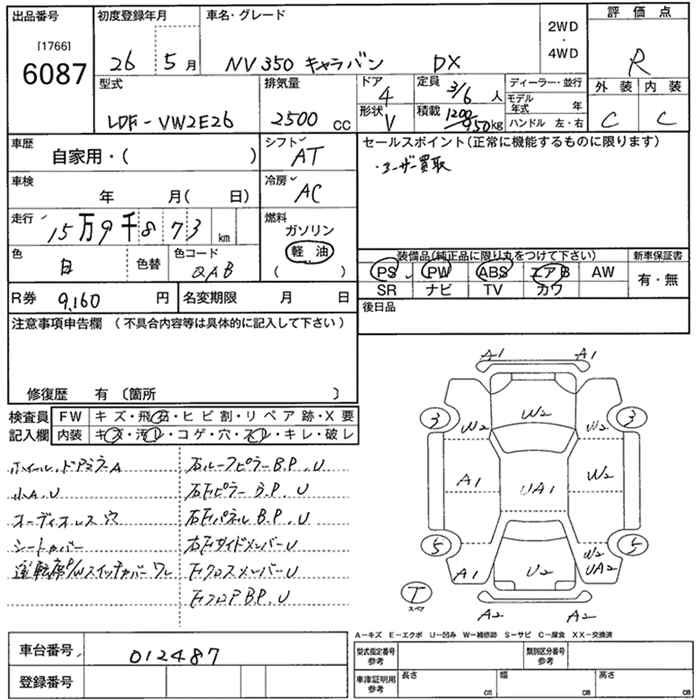 出品番号 初度登録年月 車名・グレード 2WD・4WD 評価点
[1766]
6087 26 5月 NV350 キャラバン DX R
型式 排気量 ドア 定員 ディーラー・並行 外装 内装
LDF-VW2E26 2500 cc 4 3/6 人 モデル年式 年 C C
形状 V 積載 1200/950kg ハンドル 左・右
車歴 自家用・( ) シフト AT セールスポイント(正常に機能するものに限ります)
・ユーザー買取
車検 年 月( 日) 冷房 AC
走行 15万9千873 km 燃料 ガソリン 軽油 ( )
色 白 色替 色コード QAB
装備品(純正品に限り丸をつけて下さい) 新車保証書
PS PW ABS エアB AW 有・無
SR ナビ TV カワ
R券 9,160 円 名変期限 月 日 後日品
注意事項申告欄 (不具合内容等は具体的に記入して下さい)
修復歴 有 〔箇所 〕
検査員記入欄 FW キズ・飛石・ヒビ割・リペア跡・X要
内装 キズ・汚レ・コゲ・穴・スレ・キレ・破レ
ホイール、ドアミラーA 右ルーフピラーB.P.U
小A.U 右Rピラー B.P.U
オーディオレス穴 右Rパネル B.P.U
シートカバー 右RサイドメンバーU
運転席P/Wスイッチカバーワレ RクロスメンバーU
RフロアB.P.U
A1 A1
3 W2 W2 W2 3
A1 UA1 W2
5 A1 U2 W2 UA2 5
T スペア A2 A2
A-キズ E-エクボ U-凹み W-補修跡 S-サビ C-腐食 XX-交換済
車台番号 012487
登録番号
型式指定番号 参考 類別区分番号 参考
車庫証明用 参考 長さ cm 幅 cm 高さ cm